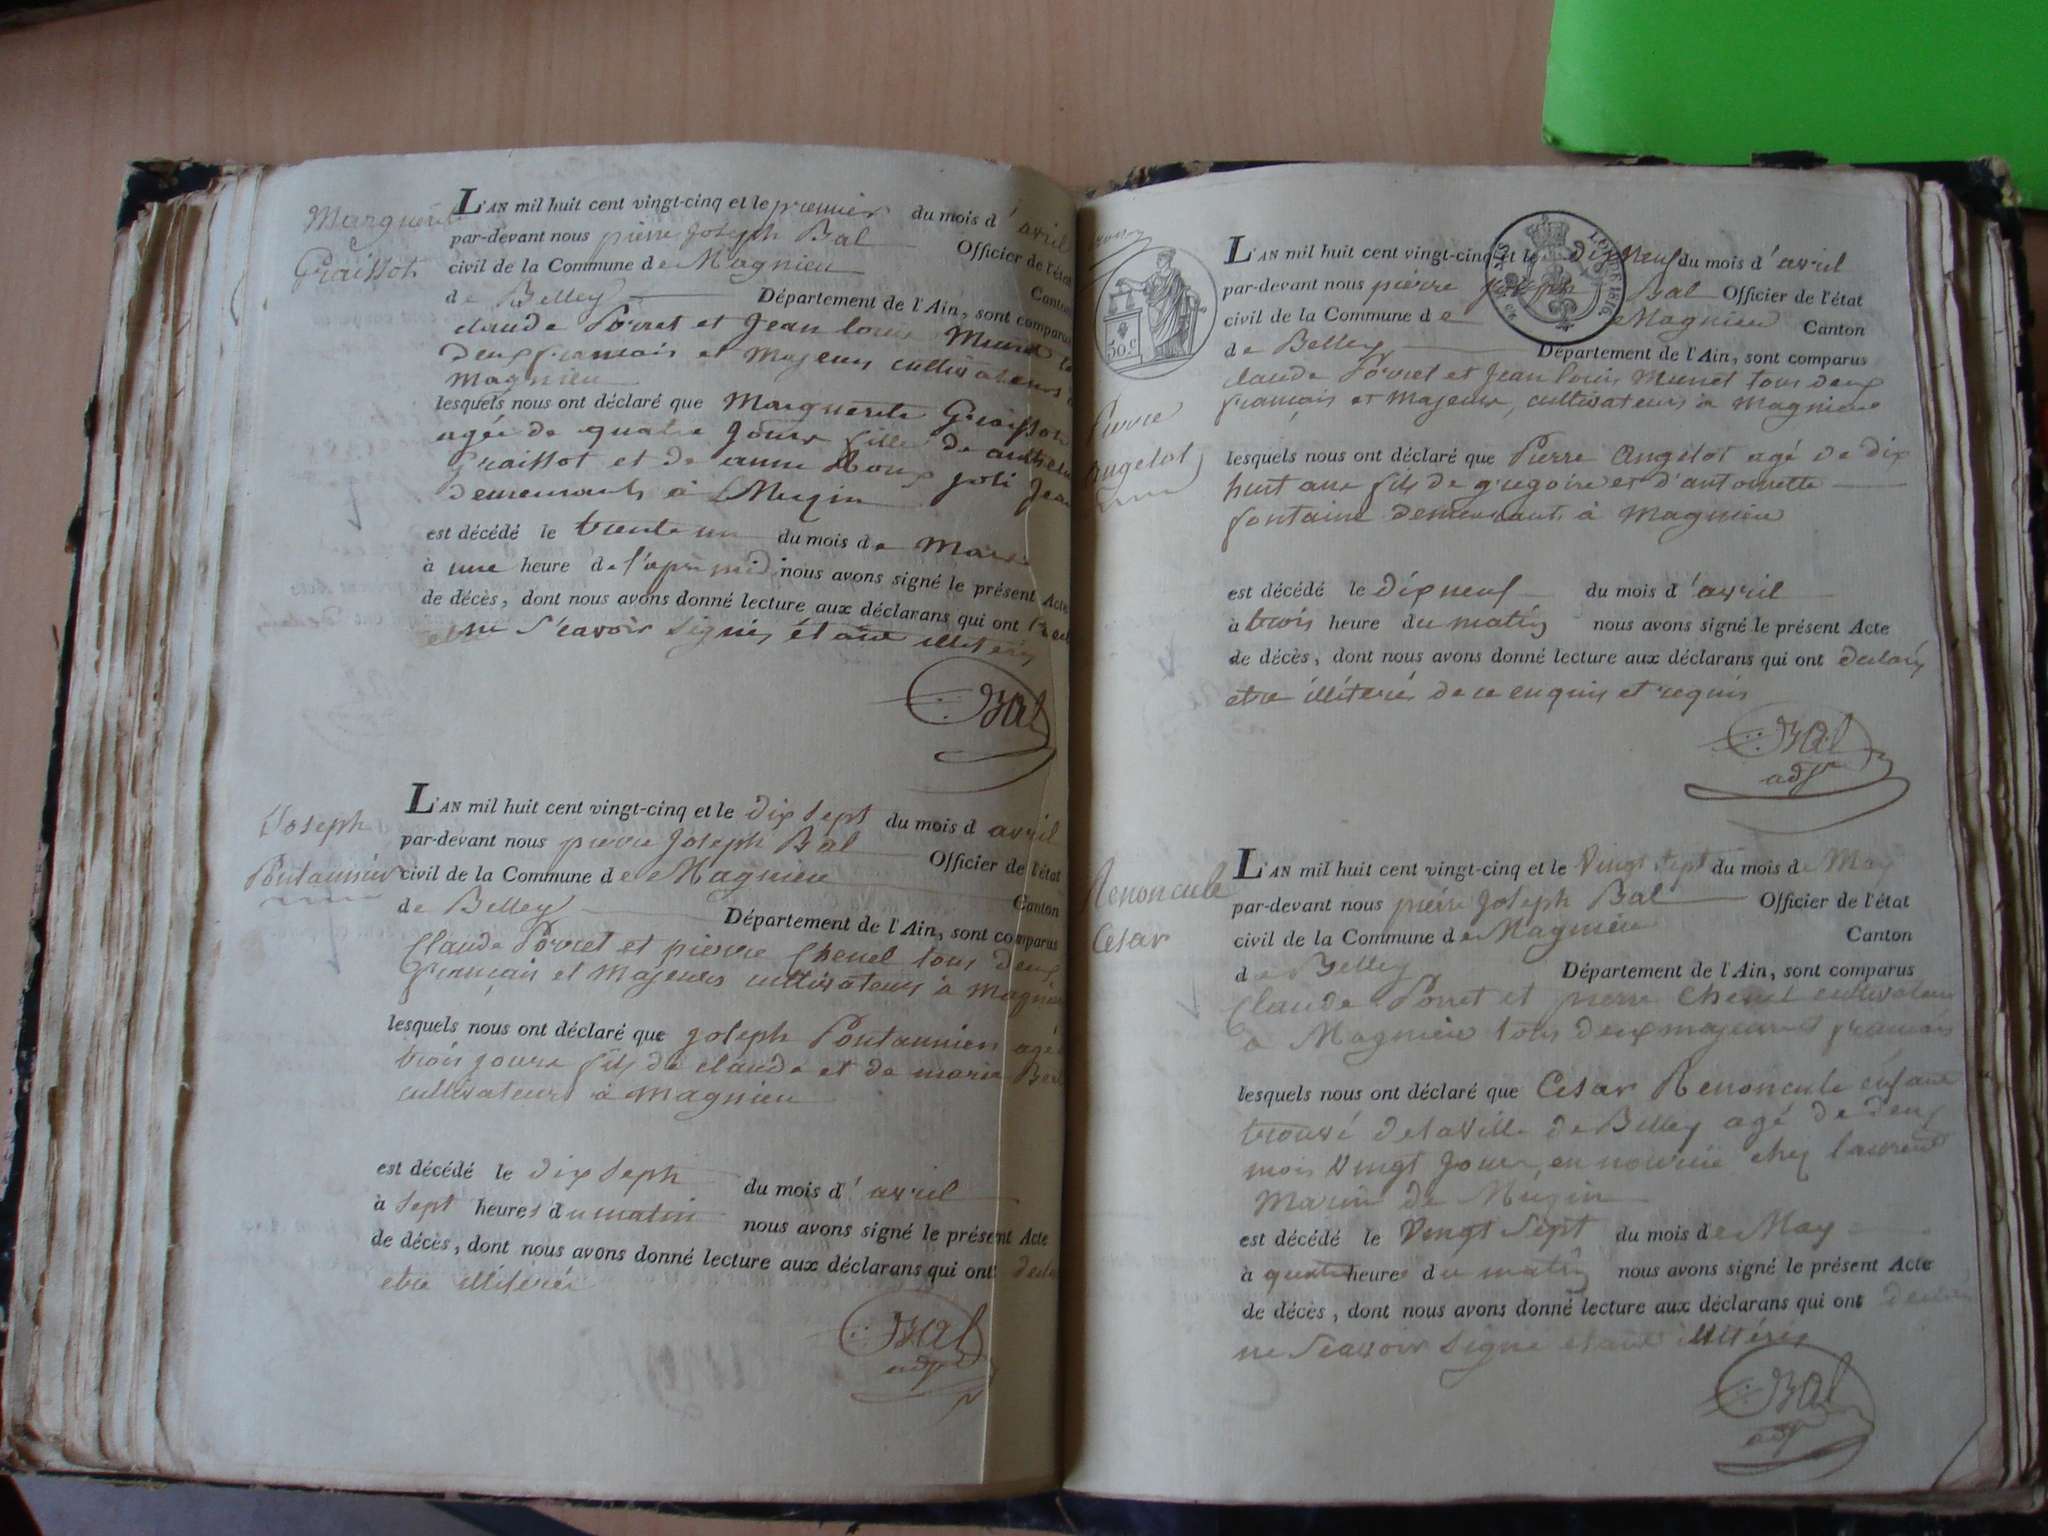 Marguerite
Graissot
L'AN mil huit cent vingt-cinq et le premier du mois d'avril
par-devant nous pierre Joseph Bal Officier de l'état
civil de la Commune de Magnieu Canton
de Belley Département de l'Ain, sont comparus
claude Porret et Jean louis Munet
deux francais et Majeurs cultivateurs
Magnieu
lesquels nous ont déclaré que Marguerite Graissot
agée de quatre Jours fille de
Graissot et de anne Roux joli Jean
demeurants à Mugin
est décédé le trente un du mois de Mars
à une heure de l'apremidi nous avons signé le présent Acte
de décès, dont nous avons donné lecture aux déclarans qui ont
ne Scavoir Signés étant illiterés
Bal
Joseph
Pontannier
L'AN mil huit cent vingt-cinq et le dix sept du mois d avril
par-devant nous pierre Joseph Bal Officier de l'état
civil de la Commune de Magnieu Canton
de Belley Département de l'Ain, sont comparus
Claude Porret et pierre Chenel tous deux
français et Majeurs cultivateurs à Magnieu
lesquels nous ont déclaré que joseph Pontannier agé
trois jours fils de claude et de marie
cultivateurs à Magnieu
est décédé le dix Seph du mois d'avril
à Sept heures du matin nous avons signé le présent Acte
de décès, dont nous avons donné lecture aux déclarans qui ont
etre illiterés
Bal
adjt
50 c
LOI DE 1816
Pierre
Angelot
L'AN mil huit cent vingt-cinq et le dix Neuf du mois d'avril
par-devant nous pierre joseph Bal Officier de l'état
civil de la Commune de Magnieu Canton
de Belley Département de l'Ain, sont comparus
claude Porret et Jean louis Munet tous deux
français et Majeurs, cultivateurs à Magnieu
lesquels nous ont déclaré que Pierre Angelot agé de dix
huit ans fils de gregoire et d'antoinette
fontaine demeurants à Magnieu
est décédé le dix neuf du mois d'avril
à trois heure du matin nous avons signé le présent Acte
de décès, dont nous avons donné lecture aux déclarans qui ont declaré
etre illiterés de ce enquis et requis
Bal
adjt
Renoncule
Cesar
L'AN mil huit cent vingt-cinq et le Vingt Sept du mois de May
par-devant nous pierre Joseph Bal Officier de l'état
civil de la Commune de Magnieu Canton
de Belley Département de l'Ain, sont comparus
Claude Porret et pierre Chenel cultivateurs
a Magnieu tous deux majeurs et francais
lesquels nous ont déclaré que Cesar Renoncule enfant
trouvé de la Ville de Belley agé de deux
mois Vingt Jours, en nourrie chez laurent
Marin de Mugin
est décédé le Vingt Sept du mois de May
à quatre heures du matin nous avons signé le présent Acte
de décès, dont nous avons donné lecture aux déclarans qui ont declaré
ne Scavoir Signe etant illiterés
Bal
adjt